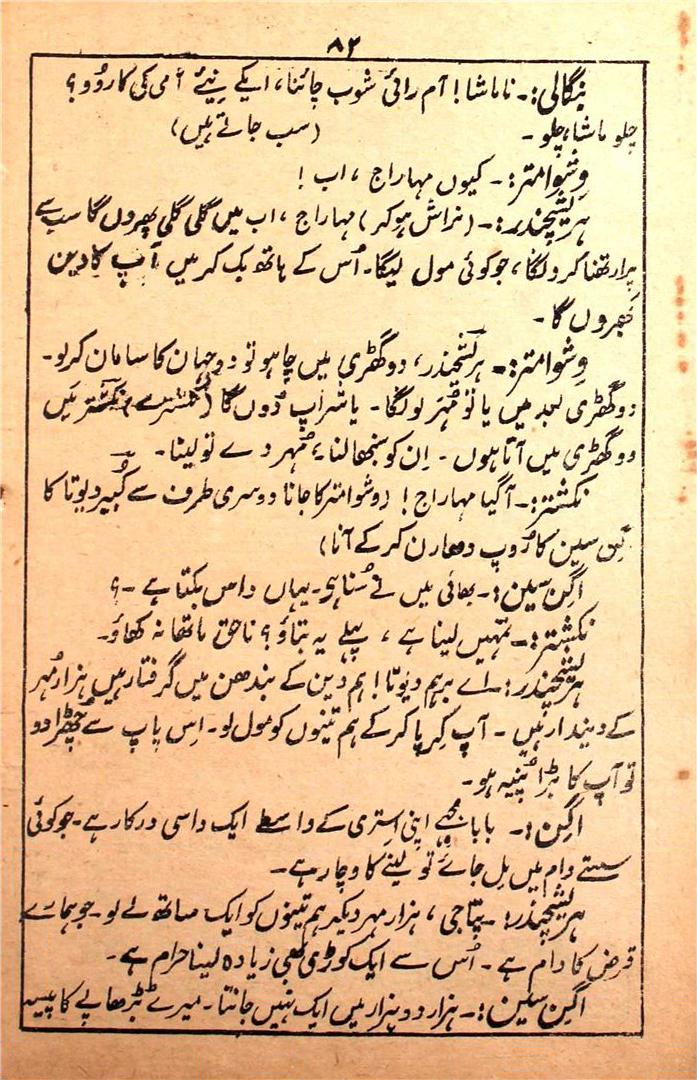 ۸۲
بنگالی:۔ نا ماشا! آم رائی شوب جائنا، ایکے نیئے آمی کی کاردو؟
چلو ماشا، چلو ۔ (سب جاتے ہیں)
وِشوامتر:۔ کیوں مہاراج ، اب !
ہریشچندر:۔ (نراش ہوکر) مہاراج ، اب میں گلی گلی پھروں گا سب سے
پرارتھنا کرولگا، جو کوئی مول لیگا۔ اُس کے ہاتھ بک کر میں آپ کا دین
بھروں گا ۔
وِشوامتر:۔ ہریشچندر، دو گھڑی میں چاہو تو دوجہان کا سامان کرلو۔
دو گھڑی بعد میں یا تو مُہر لولگا ۔ یا شراپ دُوں گا (نکشتر سے) نکشتر میں
دو گھڑی میں آتا ہوں ۔ اِن کو سنبھالنا، مُہر دے تو لینا۔
نکشتر:۔ آگیا مہاراج ! (وشوامتر کا جانا دوسری طرف سے کُبیر دیوتا کا
اگن سین کا رُوپ دھارن کر کے آنا)
اگِن سین:۔ بھائی میں نے سُنا ہی۔ یہاں داس بکتا ہے ۔؟
نکشتر:۔ تمہیں لینا ہے ، پہلے یہ بتاؤ؟ ناحق ماتھا نہ کھاؤ۔
ہریشچندر:۔ اے برہم دیوتا! ہم دین کے بندھن میں گرفتار ہیں ہزار مُہر
کے دیندار ہیں ۔ آپ کِرپا کر کے ہم تینوں کو مول لو۔ اِس پاپ سے چھڑا دو
تو آپ کا بڑا پُنیہ ہو۔
اگِن:۔ بابا مجھے اپنی اِستری کے واسطے ایک داسی درکار ہے ۔ جو کوئی
سستے دام میں مِل جائے تو لینے کا وچار ہے۔
ہریشچندر:۔ پتاجی ، ہزار مہر دیکر ہم تینوں کو ایک ساتھ لے لو۔ جو ہمارے
قرض کا دام ہے ۔ اُس سے ایک کوڑی بھی زیادہ لینا حرام ہے ۔
اگِن سین:۔ ہزار دو ہزار میں ایک نہیں جانتا۔ میرے بُڑھاپے کا پیسہ